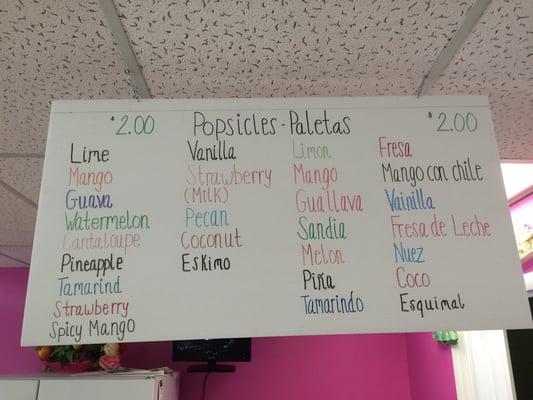 $2.00
Popsicles - Paletas
$2.00
Lime
Mango
Guava
Watermelon
Cantaloupe
Pineapple
Tamarind
Strawberry
Spicy Mango
Vanilla
Strawberry
(Milk)
Pecan
Coconut
Eskimo
Limon
Mango
Guallava
Sandia
Melon
Piña
Tamarindo
Fresa
Mango con chile
Vainilla
Fresa de Leche
Nuez
Coco
Esquimal